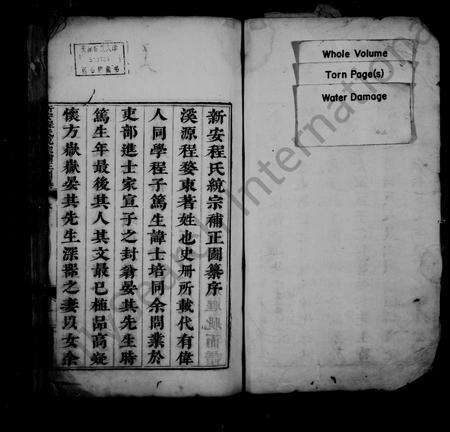 Whole Volume
Torn Page(s)
Water Damage
新安程氏統宗補正圖纂序
溪源程婺東著姓也史冊所載代有偉
人同學程子篤生諱士培同余問業於
吏部進士家宣子之封翁晏其先生時
篤生年最後其人其文最已植品高凝
懷方嶽嶽晏其先生深器之妻以女余